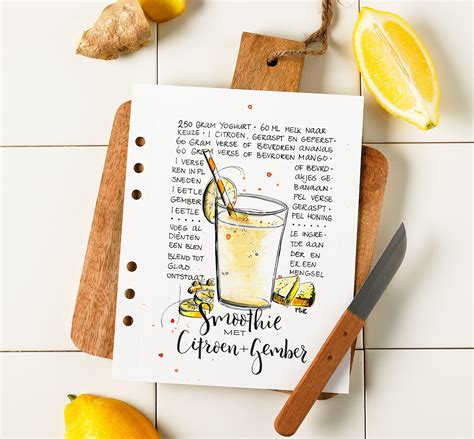 250 GRAM YOGHURT • 60 ML MELK NAAR
KEUZE • 1 CITROEN, GERASPT EN GEPERST
60 GRAM VERSE OF BEVROREN ANANAS
60 GRAM VERSE OF BEVROREN MANGO
1 VERSE OF BEVRO-
REN IN PL AKJES GE-
SNEDEN BANAAN
1 EETLE PEL VERSE
GEMBER GERASPT
1 EETLE PEL HONING
VOEG AL LE INGRE-
DIËNTEN TOE AAN
EEN BLEN DER EN
BLEND TOT ER EEN
GLAD MENGSEL
ONTSTAAT.
Smoothie
MET
Citroen + Gember